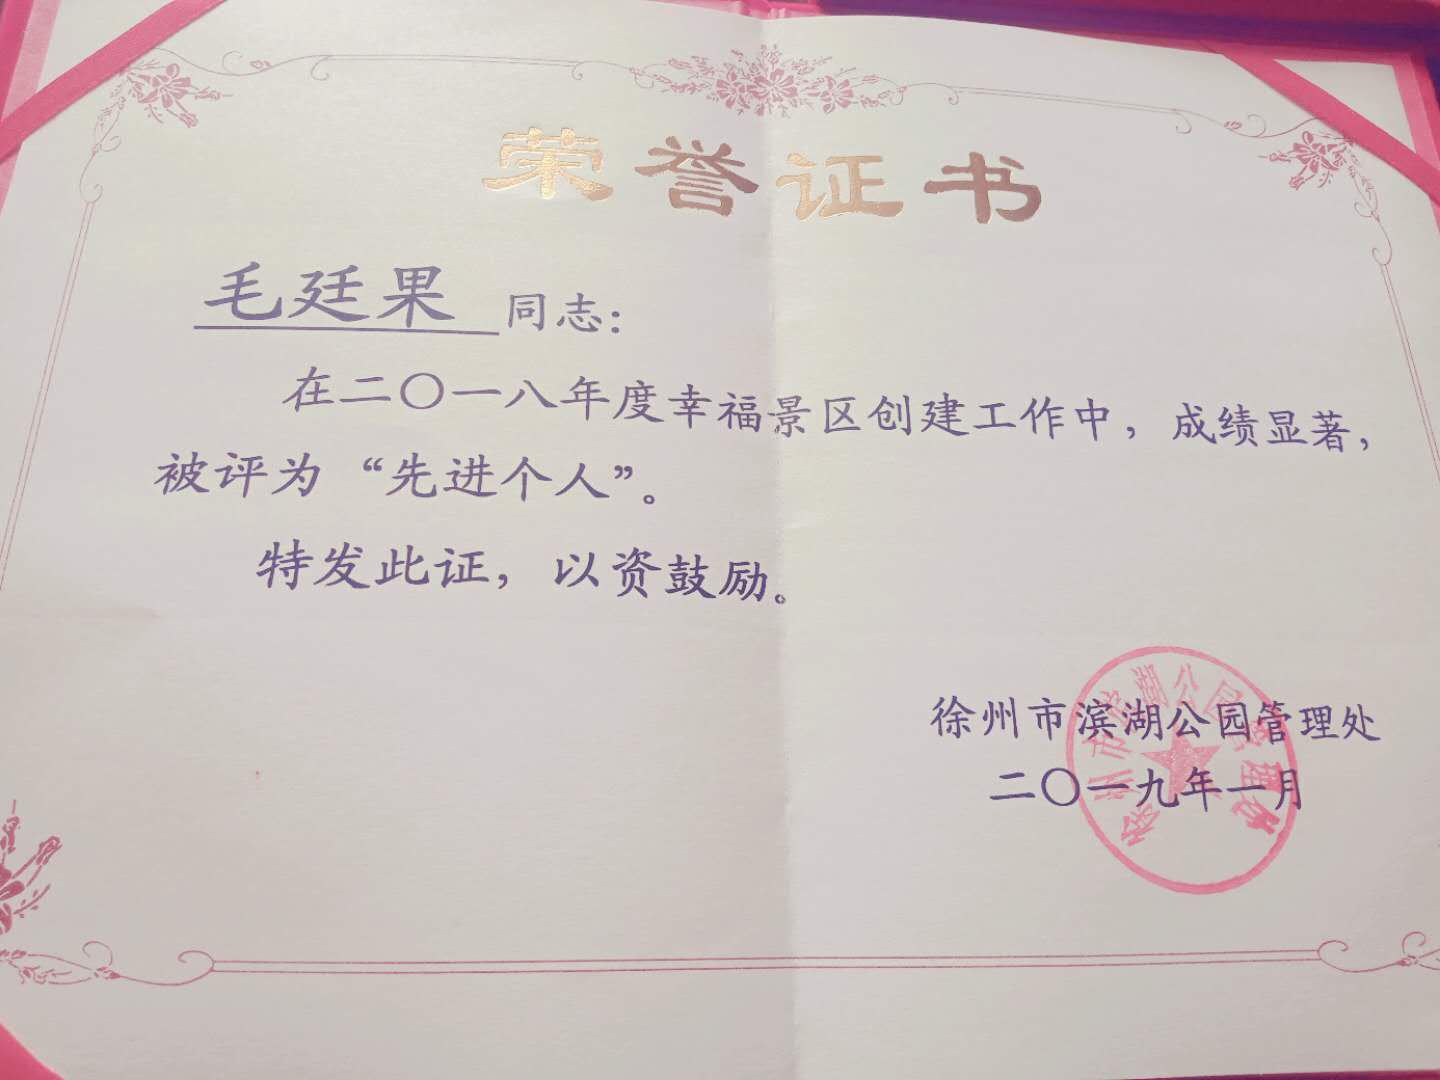 荣誉证书
毛廷果 同志：
在二〇一八年度幸福景区创建工作中，成绩显著，
被评为“先进个人”。
特发此证，以资鼓励。
徐州市滨湖公园管理处
二〇一九年一月
徐州市滨湖公园管理处